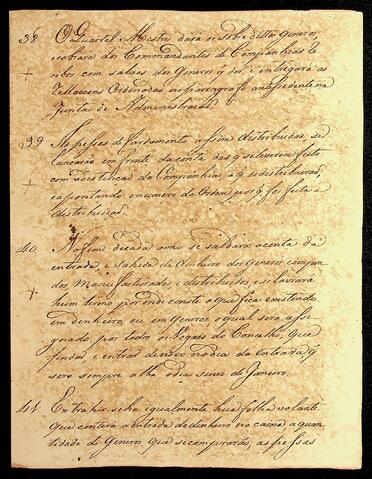 38 O Quartel Mestre dará sobre dittos Generos,
e cobrara do Commandantes de Companhias Re
cibos com sabaes dos Generos q̃ der, e entregará as
Rellacoens Ordenadas no paragrafo antessedente na
Junta de Administracaõ.
39 As pessas de fardamento assim distribuidas, se
lancaraõ em frente da conta das q̃ se tiverem feito
com a destincaõ da Companhia a q̃ se distribuiraõ,
e apontando o numero da Ordem por q̃ foi feita a
distribuicaõ.
40 No fim de cada anno se saldará a conta da
entrada, e sahida de dinheiro dos Generos compra
dos Manufacturados e distribuidos, e se lavrará
hum termo por onde conste o que fica existindo
em dinheiro, ou em Generos o qual sera assi
gnado por todos os Vogaes do Concelho, que
findaõ, e entraõ de novo no dia da entrada q̃
sera sempre athe o dia sinco de Janeiro.
41 Extrahir se ha igualmente hũa folha volante
que conterá a entrada do dinheiro na caixa a quan
tidade de Generos que se compraraõ, as pessas